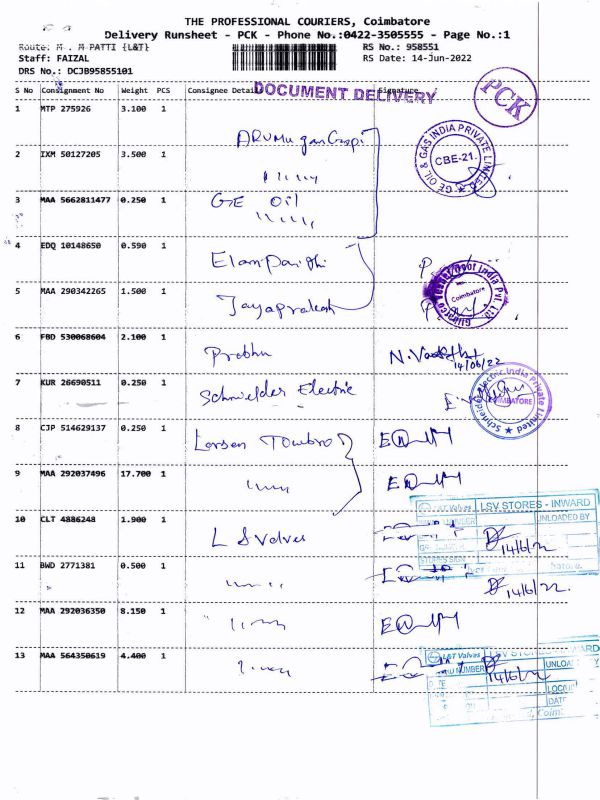 THE PROFESSIONAL COURIERS, Coimbatore
Delivery Runsheet - PCK - Phone No.:0422-3505555 - Page No.:1
Route: M . M PATTI (L&T) RS No.: 958551
Staff: FAIZAL RS Date: 14-Jun-2022
DRS No.: DCJB95855101
S No Consignment No Weight PCS Consignee Details Signature
DOCUMENT DELIVERY
PCK
1 MTP 275926 3.100 1
GE OIL & GAS INDIA PRIVATE LIMITED
CBE-21.
2 IXM 50127205 3.500 1
3 MAA 5662811477 0.250 1 GE Oil
4 EDQ 10148650 0.590 1
Coimbatore
5 MAA 290342265 1.500 1 Jayaprakash
6 FBD 530068604 2.100 1 Prabhu
14/06/22
7 KUR 26690511 0.250 1 Schneider Electric
Schneider Electric India Private Limited
COIMBATORE
8 CJP 514629137 0.250 1 Larsen Toubro
9 MAA 292037496 17.700 1
L&T Valves LSV STORES - INWARD
UNLOADED BY
10 CLT 4886248 1.900 1 L & Valves
14/6/22
11 BWD 2771381 0.500 1
14/6/22.
12 MAA 292036350 8.150 1
13 MAA 564350619 4.400 1
L&T Valves LSV STORES - INWARD
NUMBER
14/6/22
DATE